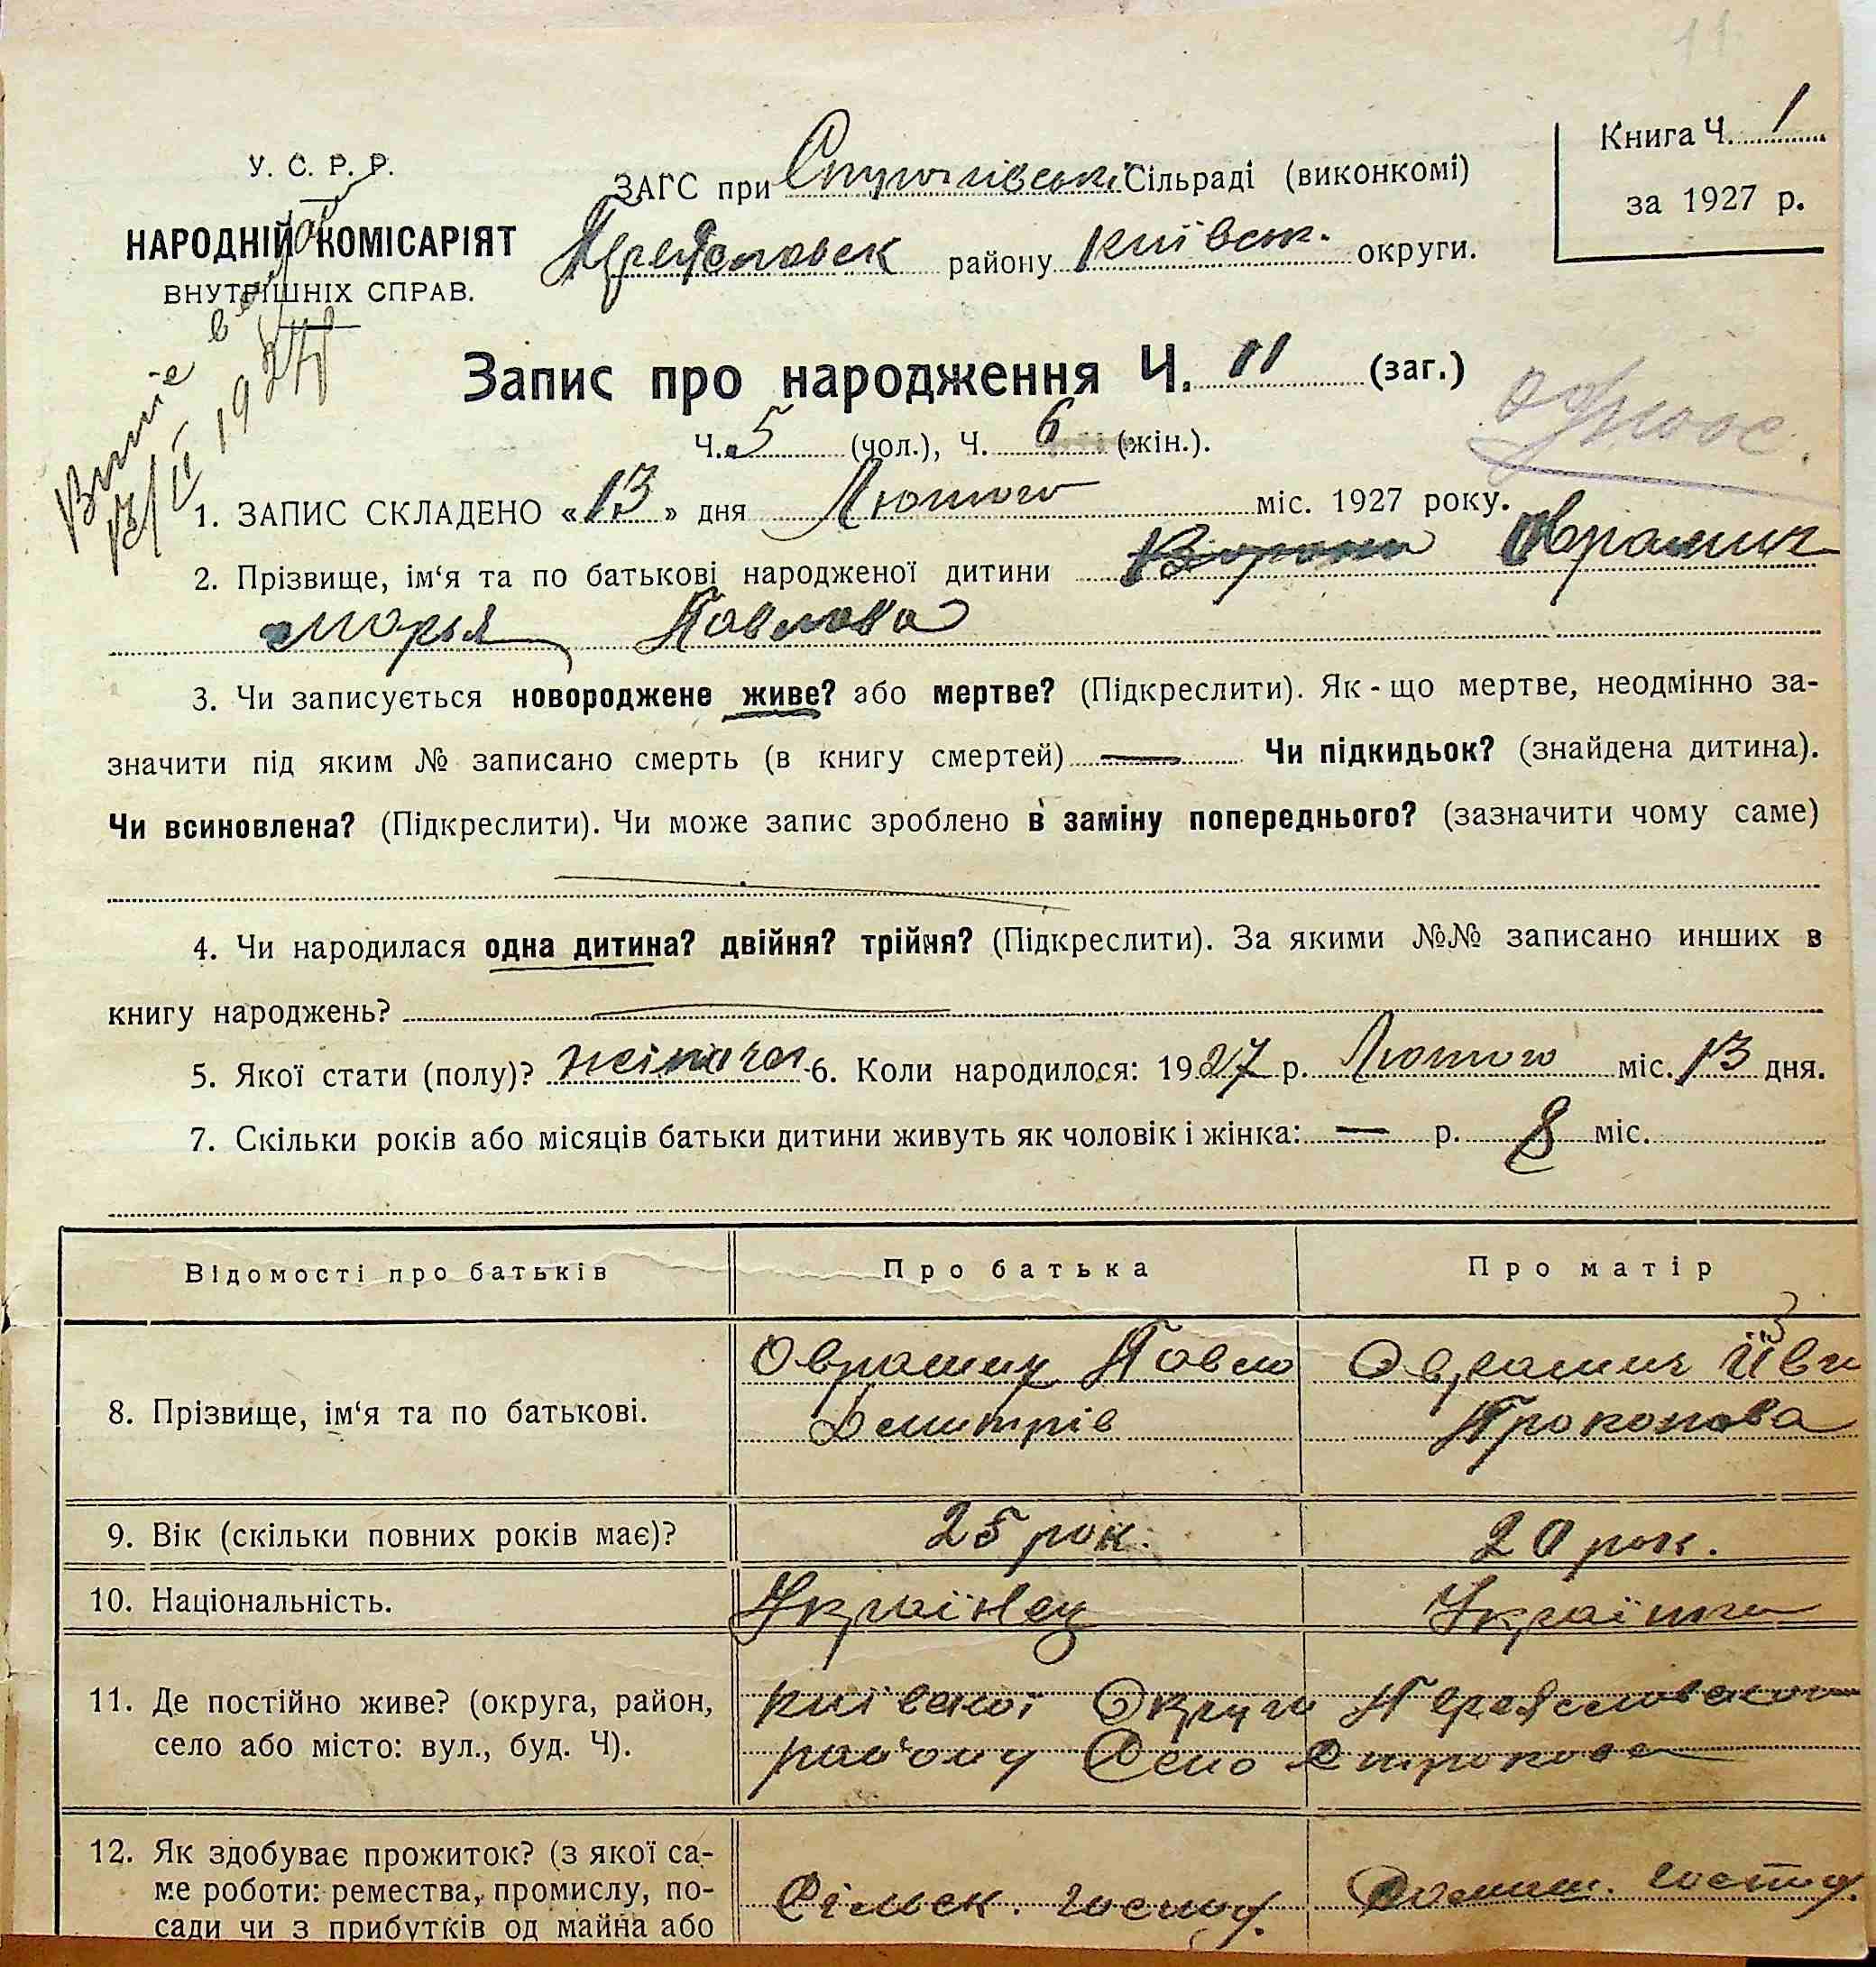 11
У. С. Р. Р.
НАРОДНІЙ КОМІСАРІЯТ
ВНУТРІШНІХ СПРАВ.
ЗАГС при Сільраді (виконкомі)
району Київськ. округи.
Книга Ч. 1
за 1927 р.
Запис про народження Ч. 11 (заг.)
Ч. 5 (чол.), Ч. 6 (жін.).
1. ЗАПИС СКЛАДЕНО «13» дня Лютого міс. 1927 року.
2. Прізвище, ім‘я та по батькові народженої дитини Оврамич
Марья Павлова
3. Чи записується новороджене живе? або мертве? (Підкреслити). Як-що мертве, неодмінно за-
значити під яким № записано смерть (в книгу смертей) — Чи підкидьок? (знайдена дитина).
Чи всиновлена? (Підкреслити). Чи може запис зроблено в заміну попереднього? (зазначити чому саме)
4. Чи народилася одна дитина? двійня? трійня? (Підкреслити). За якими №№ записано инших в
книгу народжень?
5. Якої стати (полу)? 6. Коли народилося: 1927 р. Лютого міс. 13 дня.
7. Скільки років або місяців батьки дитини живуть як чоловік і жінка: — р. 8 міс.
Відомості про батьків Про батька Про матір
8. Прізвище, ім‘я та по батькові.
Оврамич Павло
Демитрів
Оврамич
Прокопова
9. Вік (скільки повних років має)? 25 рок. 20 рок.
10. Національність. Українец Українка
11. Де постійно живе? (округа, район,
село або місто: вул., буд. Ч).
Київської Округи
району Село Строкова
12. Як здобуває прожиток? (з якої са-
ме роботи: ремества, промислу, по-
сади чи з прибутків од майна або
Сільск. господ.
Домаш. госпód.